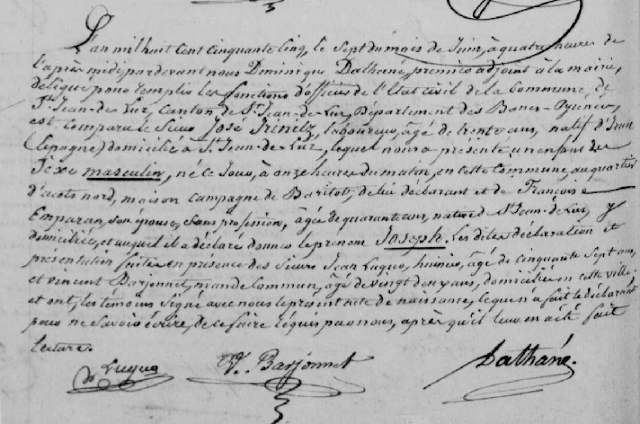 L'an mil huit cent cinquante cinq, le sept du mois de Juin, à quatre heures de
l'après midi pardevant nous Dominique Dalhané, premier adjoint à la mairie,
délégué pour remplir les fonctions d'officier de l'Etat civil de la Commune, de
St. Jean-de-Luz, Canton de St. Jean-de-Luz, Département des Basses-Pyrénées,
est comparu le Sieur José laboureur, âgé de trente ans, natif d'Irun
(Espagne) domicilié à St. Jean-de-Luz, lequel nous a présenté un enfant du
Sexe masculin, né ce Jour, à onze heures du matin, en cette Commune, au quartier
d'acots nord, maison Campagne de de lui déclarant et de Françoise
Emparan, son épouse, sans profession, agée de quarante ans, native de St. Jean-de-Luz y
domiciliée, et auquel il a déclaré donner le prénom Joseph. Les dites déclaration et
présentation faites en présence des Sieurs Jean huissier, âgé de Cinquante Sept ans,
et vincent Barjonnet, âgé de vingt deux ans, domiciliés en cette ville
et ont, les témoins Signé avec nous le présent acte de naissance, ce que n'a fait le déclarant
pour ne savoir écrire, de ce faire requis par nous, après qu'il leur en a été fait
lecture.
V. Barjonnet
Dalhané.